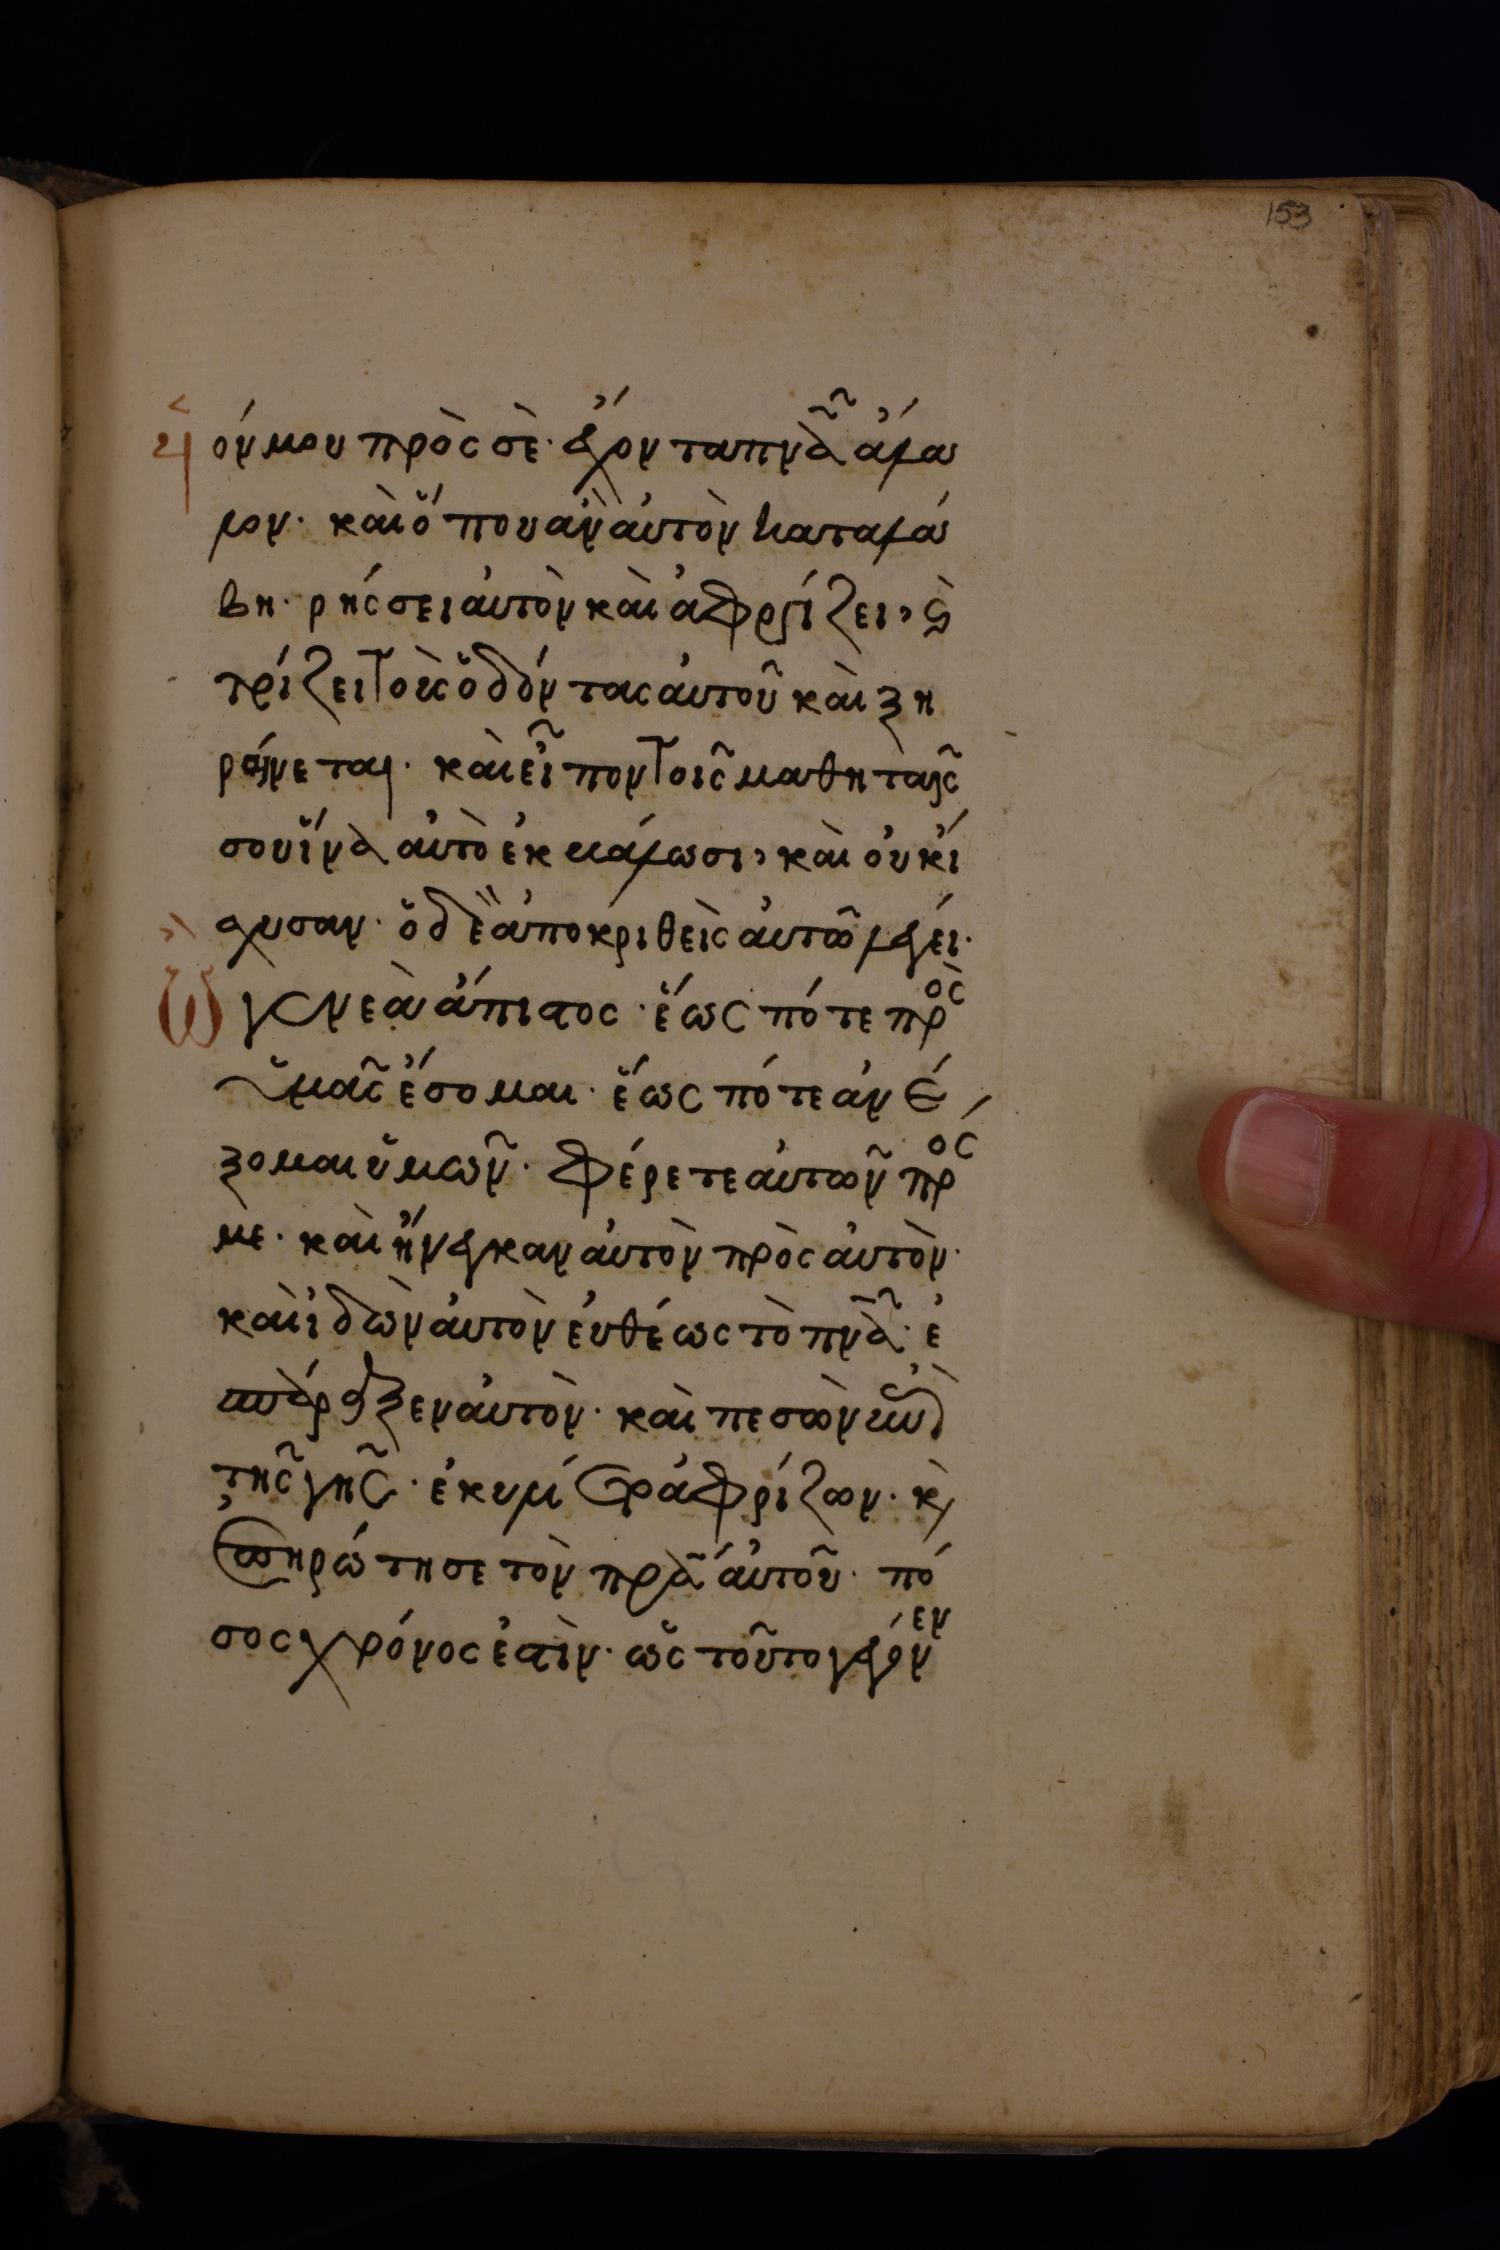 153
ὑιόν μου πρὸς σὲ· ἔχοντα πνᾶ ἄλα
λον· καὶ ὅπου ἂν ἀυτὸν καταλά
βη· ρήσσει ἀυτὸν καὶ ἀφρίζει, ϗ
τρίζει τοὺς ὀδόντας ἀυτοῦ καὶ ξη
ραίνεται· καὶ εἶπον τοῖς μαθηταῖς
σου ἵνα ἀυτὸ ἐκβάλωσι, καὶ ὀυκ ἴ
σχυσαν· ὁ δὲ ἀποκριθεὶς ἀυτῶ λέγει·
Ὦ γενεὰ ἄπιστος· ἕως πότε πρὸς
ὑμᾶς ἔσομαι· ἕως πότε ἀνέ
ξομαι ὑμῶν· φέρετε ἀυτῶν πρός
μὲ· καὶ ἤνεγκαν ἀυτὸν πρὸς ἀυτὸν·
καὶ ἰδὼν ἀυτὸν ἐυθέως τὸ πνᾶ· ἐ
σπάραξεν ἀυτὸν· καὶ πεσὼν ἐπὶ
τῆς γῆς· ἐκυλίετο ἀφρίζων· κ̀
ἐπηρώτησε τὸν πρᾶ ἀυτοῦ· πό
σος χρόνος ἐστὶν· ὡς τοῦτο γέγονεν